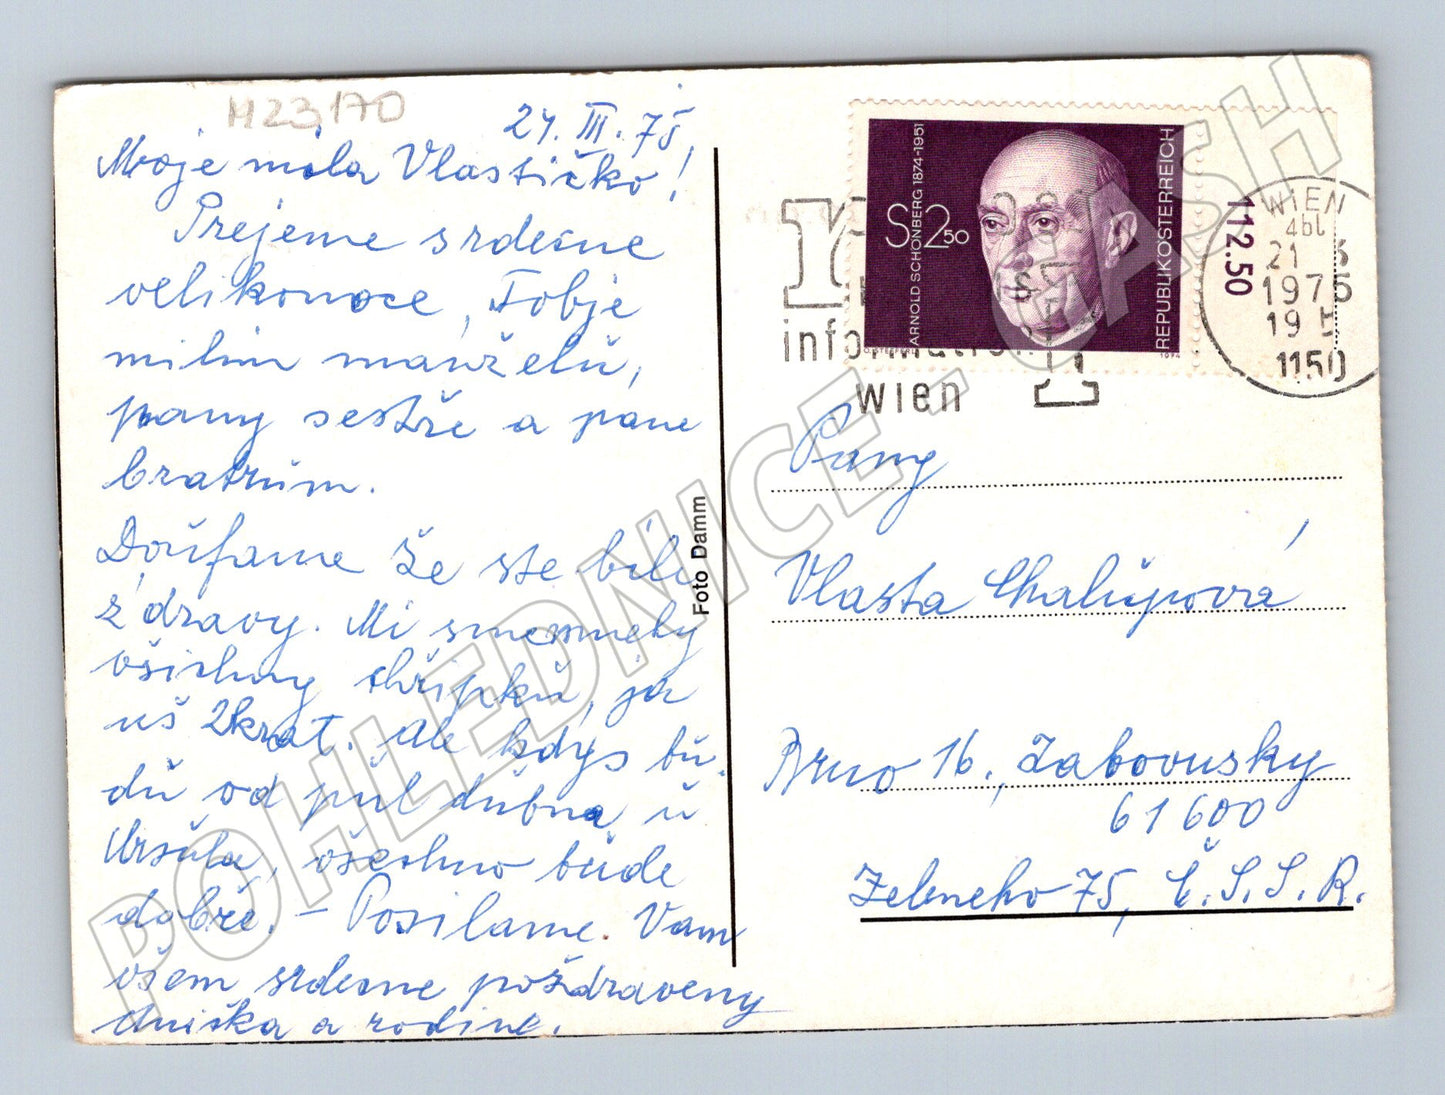 M23,170
24. III. 75,
Moje mila Vlastičko!
Prejeme srdecne
velikonoce, Tobje
milim manželů,
pany sestře a pane
bratrům.
Doufame že ste bili
zdravy. Mi sme mněly
všichny chřipku, ja
uš 2krat. Ale kdys bu-
du od půl dubna u
Uršula, všechno bude
dobře. - Posilame Vam
všem srdecne poždraveny
a rodine.
Foto Damm
ARNOLD SCHÖNBERG 1874-1951
S 250
REPUBLIK ÖSTERREICH
1974
112.50
information
wien
WIEN
21
1975
19
1150
Pany
Vlasta Chalupová
Brno 16, Žabovusky
61600
Zelnneho 75, Č.S.S.R.
POHLEDNICE - CASH